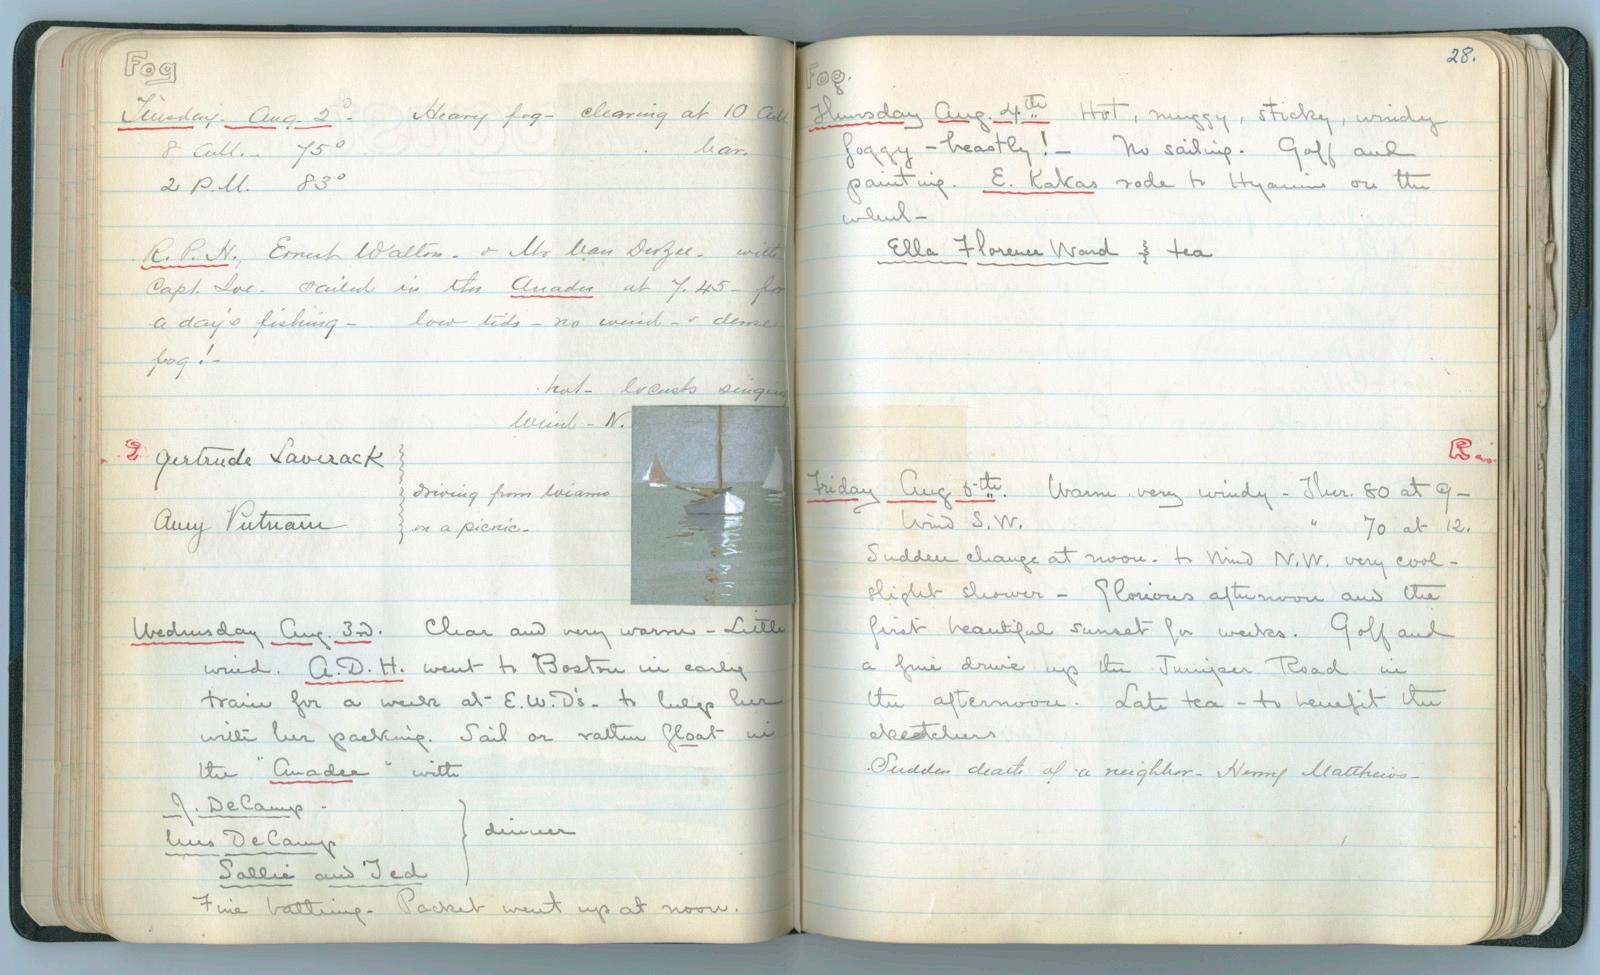 Fog
Tuesday. Aug. 2º. Heavy fog - clearing at 10 A.M.
8 A.M. - 75° bar.
2 P.M. 83°
R.P.H., Ernest Walton - & Mr Van DerZee - with
Capt. Joe. sailed in the Anadee at 7.45 - for
a day's fishing - low tide - no wind - & dense
fog! -
hot - locusts singing
Wind - N.
2 Gertrude Laverack
driving from Wianno
Amy Putnam on a picnic.
Wednesday Aug. 3d. Clear and very warm - Little
wind. A.D.H. went to Boston in early
train for a week at E.W.D's - to help her
with her packing. Sail or rather float in
the "Anadee" with
J. DeCamp -
Mrs DeCamp dinner
Sallie and Ted
Fine bathing. Packet went up at noon.
28.
Fog.
Thursday Aug. 4th Hot, muggy, sticky, windy
foggy - beastly! - No sailing. Golf and
painting. E. Kakas rode to Hyannis on the
wheel -
Ella Florence Ward } tea
Rain
Friday Aug 5th. Warm very windy - Ther. 80 at 9 -
Wind S.W. " 70 at 12.
Sudden change at noon - to Wind N.W. very cool -
slight shower - Glorious afternoon and the
first beautiful sunset for weeks. Golf and
a fine drive up the Juniper Road in
the afternoon. Late tea - to benefit the
sketchers
Sudden death of a neighbor - Henry Matthews -